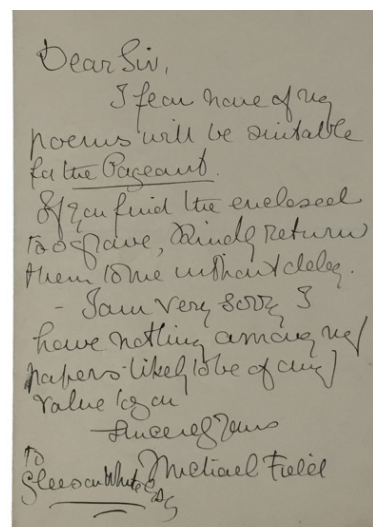 Dear Sir,
I fear none of my
poems will be suitable
for the Pageant.
If you find the enclosed
too grave, kindly return
them to me without delay.
- I am very sorry I
have nothing among my
papers likely to be of any
value to you
Sincerely Yours
Michael Field
To
Gleeson White Esq